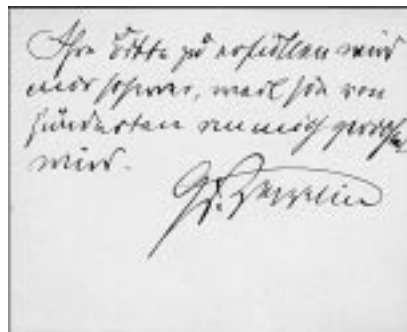 Ihre Bitte zu erfüllen wird
mir schwer, weil sie von
Hunderten an mich gerichtet
wird.
Gf. Zeppelin